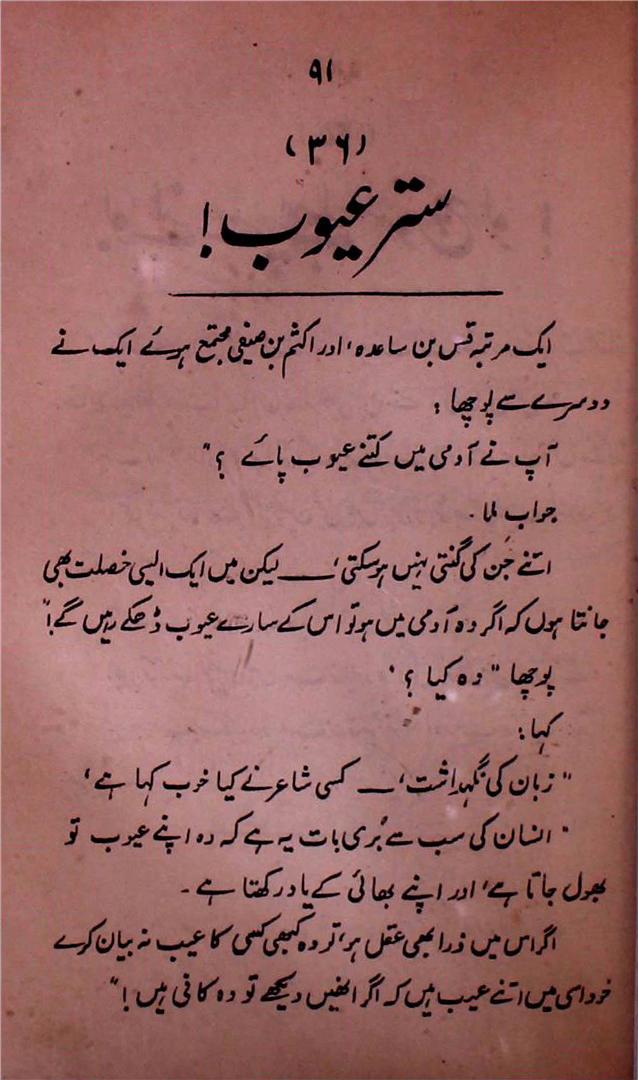 ۹۱
(۳۶)
ستر عیوب!
ایک مرتبہ قس بن ساعدہ، اور اکثم بن صیفی مجتمع ہوئے ایک نے
دوسرے سے پوچھا:
آپ نے آدمی میں کتنے عیوب پائے ؟"
جواب ملا۔
اتنے جن کی گنتی نہیں ہو سکتی، — لیکن میں ایک ایسی خصلت بھی
جانتا ہوں کہ اگر وہ آدمی میں ہو تو اس کے سارے عیوب ڈھکے رہیں گے!"
پوچھا "وہ کیا ؟"
کہا:
"زبان کی نگہداشت، — کسی شاعر نے کیا خوب کہا ہے،
"انسان کی سب سے بُری بات یہ ہے کہ وہ اپنے عیوب تو
بھول جاتا ہے، اور اپنے بھائی کے یاد رکھتا ہے۔
اگر اس میں ذرا بھی عقل ہو، تو وہ کبھی کسی کا عیب نہ بیان کرے
خود اسی میں اتنے عیب ہیں کہ اگر انھیں دیکھے تو وہ کافی ہیں!"